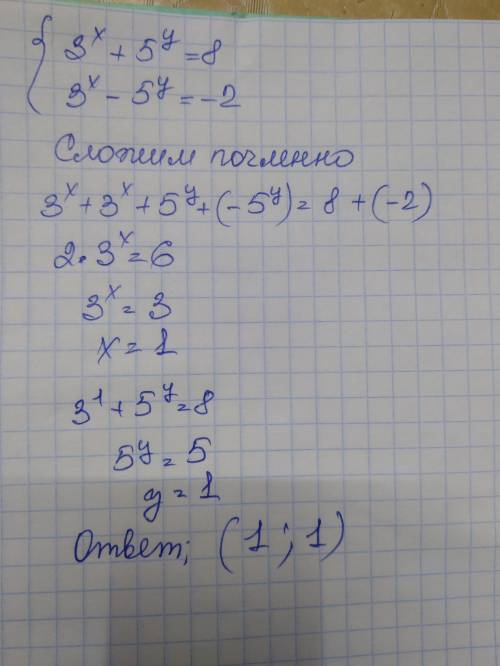 { 3^x + 5^y = 8
3^x - 5^y = -2
Сложим почленно
3^x + 3^x + 5^y + (-5^y) = 8 + (-2)
2 · 3^x = 6
3^x = 3
x = 1
3^1 + 5^y = 8
5^y = 5
y = 1
Ответ; (1 ; 1)